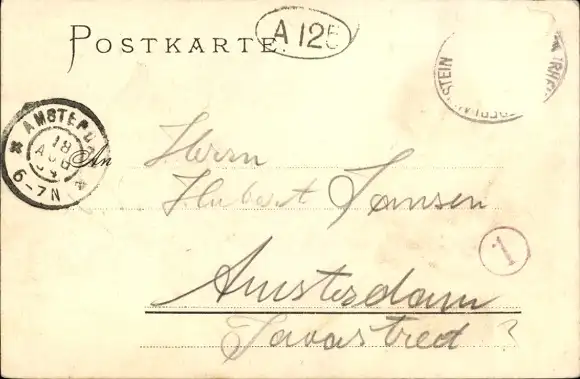 POSTKARTE.
A 125
STEIN
AMSTERDA
18
AUG
6-7N
An
Herrn
Hubert Jansen
1
Amsterdam
Javastred ?